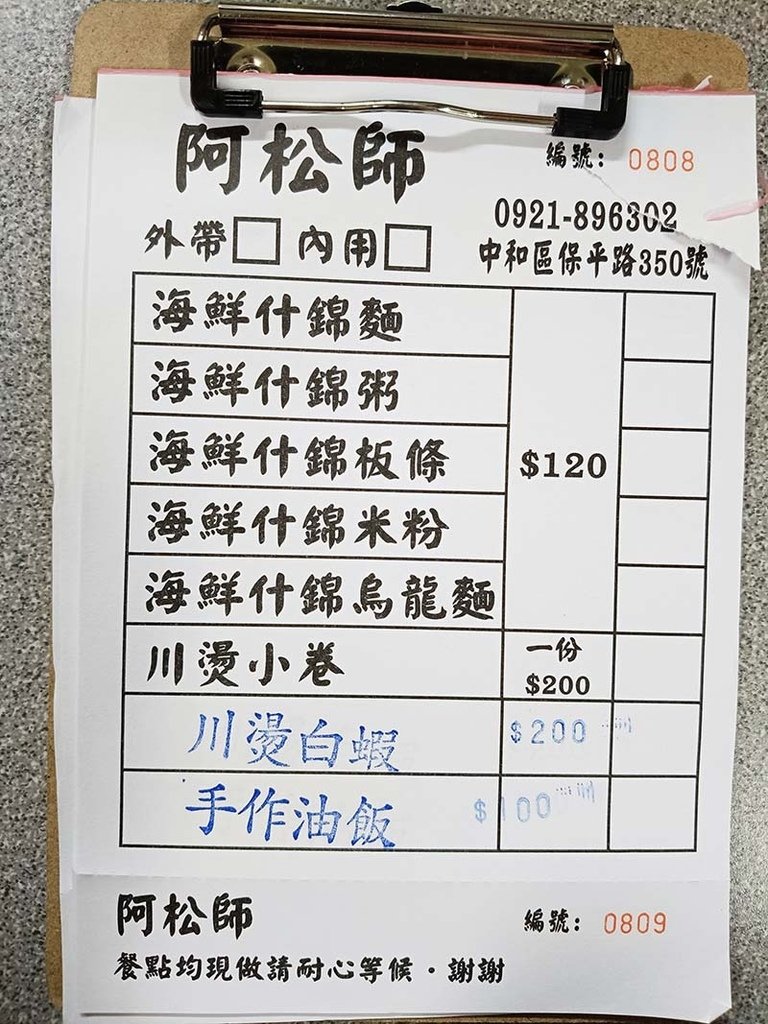 阿松師
編號: 0808
外帶 內用
0921-896302
中和區保平路350號
海鮮什錦麵
海鮮什錦粥
海鮮什錦板條
$120
海鮮什錦米粉
海鮮什錦烏龍麵
川燙小卷
一份
$200
川燙白蝦
$200
手作油飯
$100
阿松師
編號: 0809
餐點均現做請耐心等候。謝謝